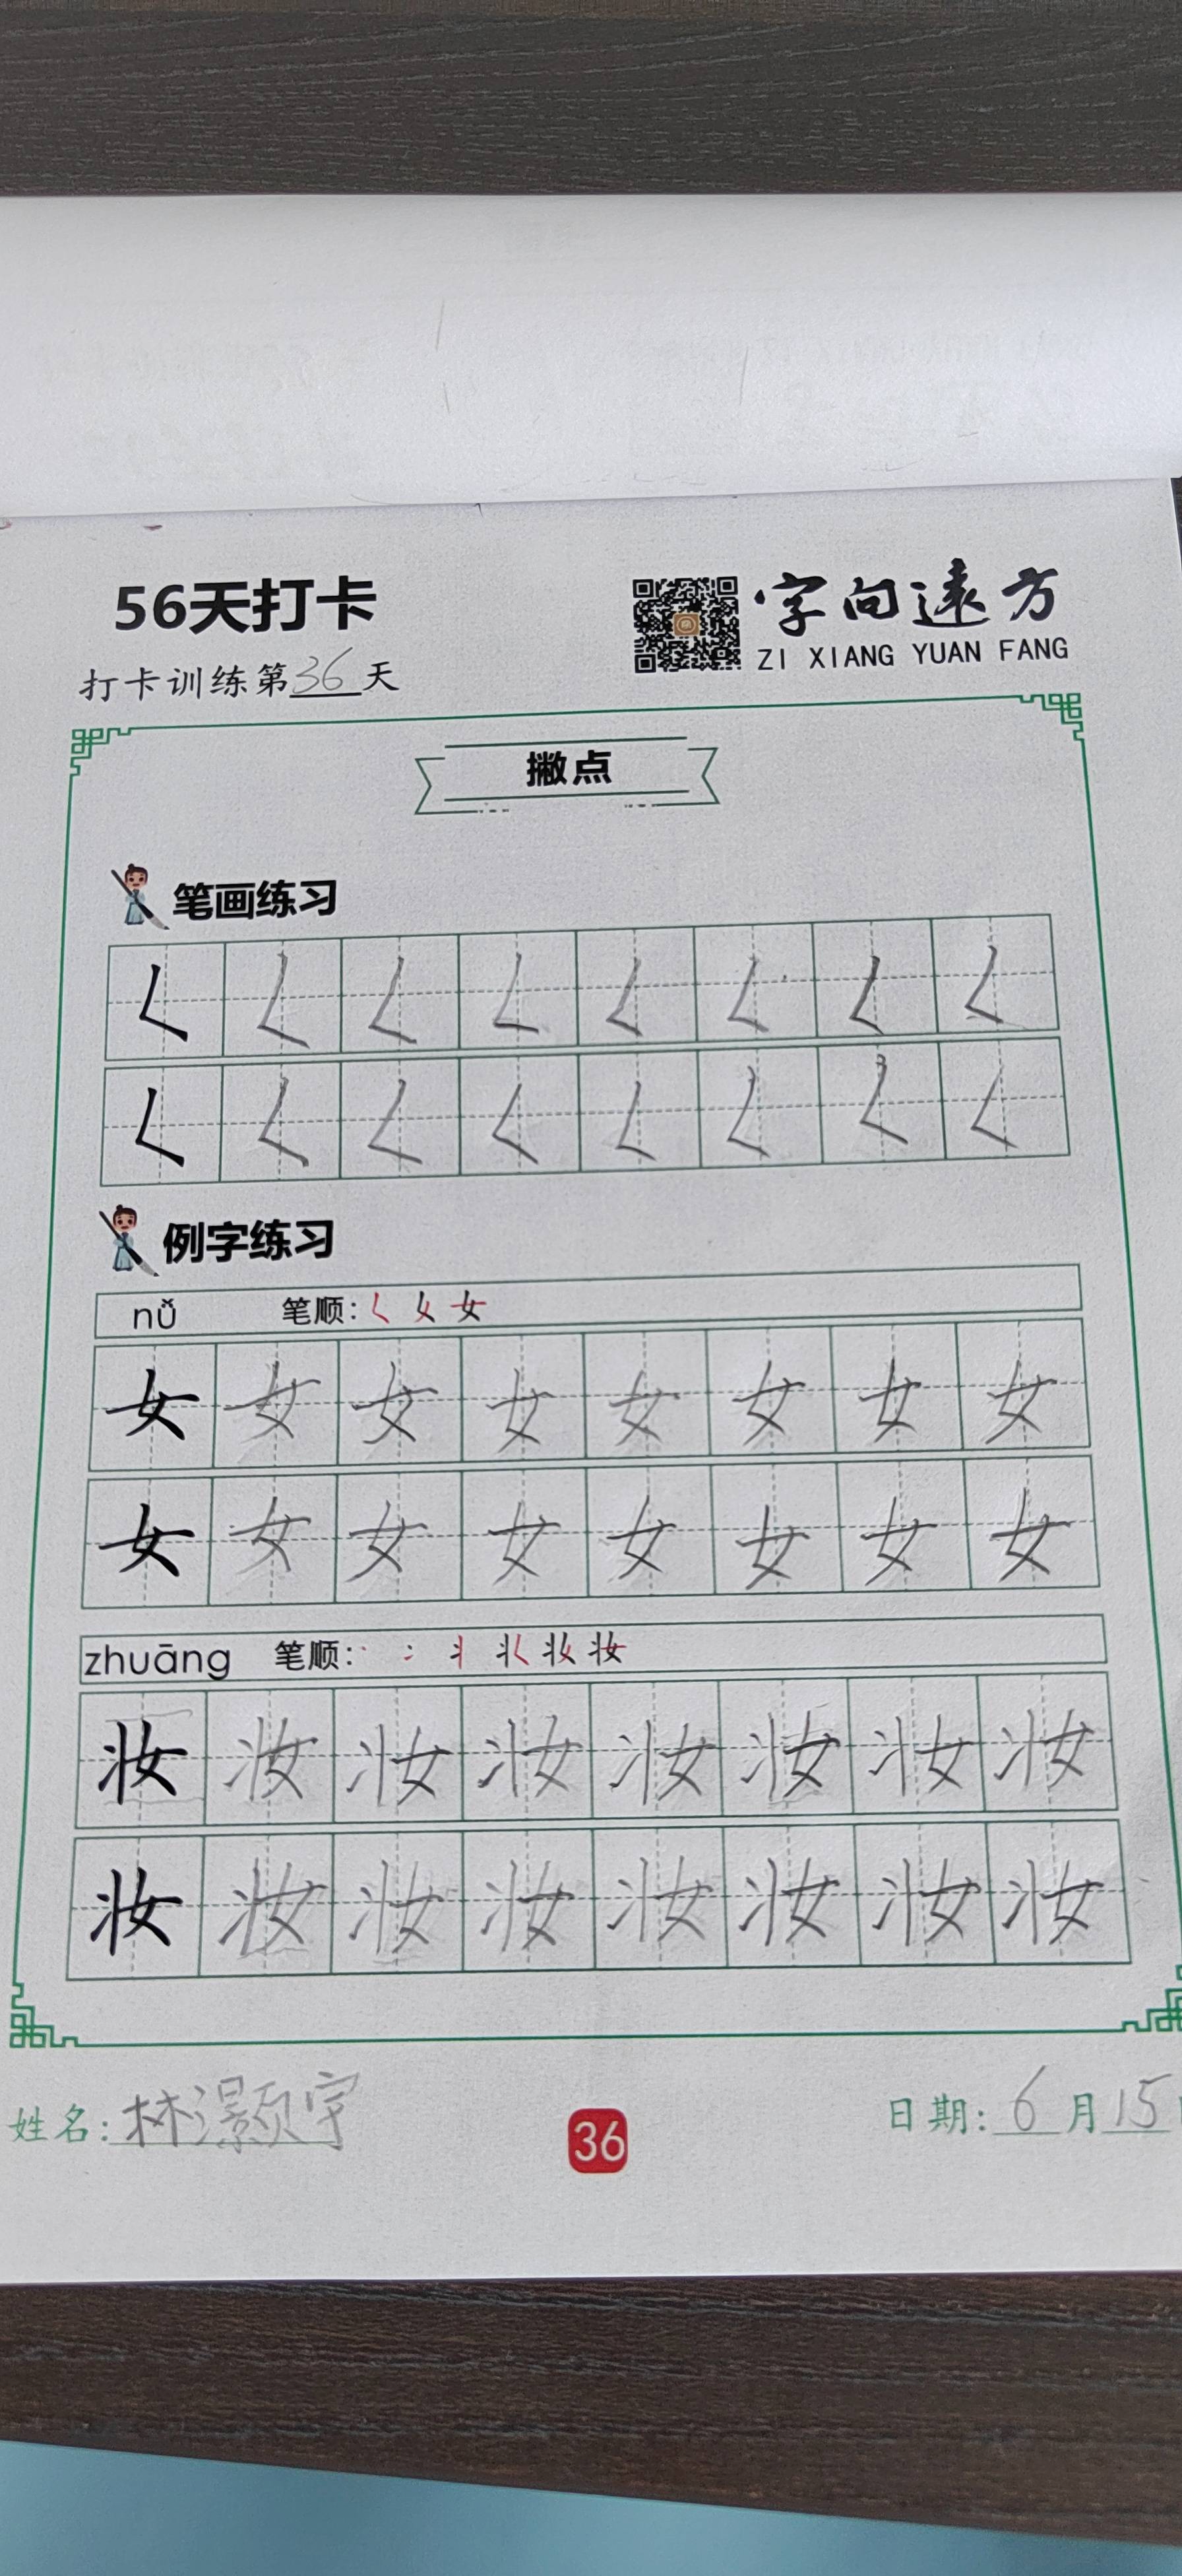 56天打卡
字向远方
ZI XIANG YUAN FANG
打卡训练第36天
撇点
笔画练习
𡿨 𡿨 𡿨 𡿨 𡿨 𡿨 𡿨 𡿨
𡿨 𡿨 𡿨 𡿨 𡿨 𡿨 𡿨 𡿨
例字练习
nǚ 笔顺: 𡿨 女 女
女 女 女 女 女 女 女 女
女 女 女 女 女 女 女 女
zhuāng 笔顺: 丶 冫 丬 妆
妆 妆 妆 妆 妆 妆 妆 妆
妆 妆 妆 妆 妆 妆 妆 妆
姓名: 林灏宇
36
日期: 6月15